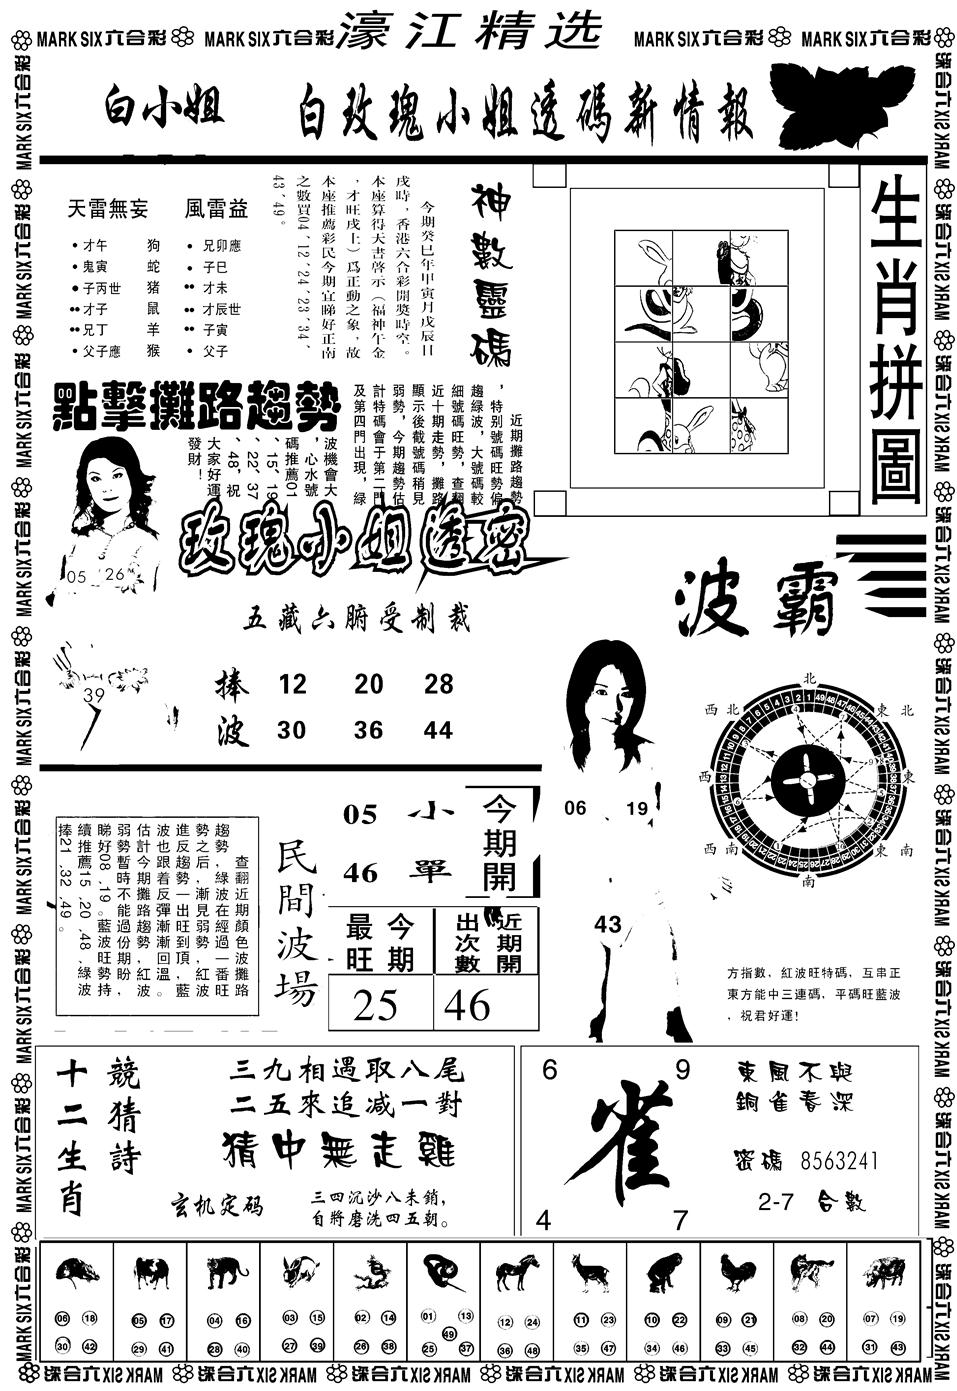 濠江精选
MARK SIX六合彩 MARK SIX六合彩 MARK SIX六合彩 MARK SIX六合彩
白小姐 白玫瑰小姐透碼新情報
天雷無妄 風雷益
•才午 狗 •兄卯應
•鬼寅 蛇 •子巳
•子丙世 猪 ••才未
••才子 鼠 ••才辰世
••兄丁 羊 ••子寅
•父子應 猴 •父子
神數靈碼
今期癸巳年甲寅月戊辰日
戌時，香港六合彩開獎時空。
本座算得天書啓示（福神午金
，才旺戌上）爲正動之象，故
本座推薦彩民今期宜睇好正南
之數買04、12、24、23、34、
43、49。
生肖拼圖
點擊攤路趨勢
近期攤路趨勢
，特别號碼旺勢偏
趨綠波，大號碼較
細號碼旺勢，查翻
近十期走勢，攤路
顯示後截號碼稍見
弱勢，今期趨勢估
計特碼會于第二門
及第四門出現，綠
波機會大
，心水號
碼推薦01
、15、19
、22、37
、48，祝
大家好運
發財！
05 26
39
玫瑰小姐透密
五藏六腑受制裁
捧 12 20 28
波 30 36 44
波霸
06 19
43
北
西北 東北
西 東
西南 東南
南
方指數，紅波旺特碼，互串正
東方能中三連碼，平碼旺藍波
，祝君好運！
查翻近期顏色波攤路
趨勢，綠波在經過一番旺
勢之后，漸見弱勢，紅波
進反趨勢一出旺到頂，藍
波也跟着反彈漸漸回溫。
估計今期攤路趨勢，紅波
弱勢暫時不能過份期盼，
睇好08、19。藍波旺勢持
續推薦15、20、48，綠波
捧21、32、49。
民間波場
05 小
46 單
今期開
今期最旺 近期開出次數
25 46
十二生肖
競猜詩
三九相遇取八尾
二五來追减一對
猜中無走雞
玄机定码
三四沉沙八未銷，
自將磨洗四五朝。
6 9
雀
4 7
東風不與
銅雀春深
密碼 8563241
2-7 合數
06 18 30 42
05 17 29 41
04 16 28 40
03 15 27 39
02 14 26 38
01 13 49 25 37
12 24 36 48
11 23 35 47
10 22 34 46
09 21 33 45
08 20 32 44
07 19 31 43
MARK SIX六合彩 MARK SIX六合彩 MARK SIX六合彩 MARK SIX六合彩 MARK SIX六合彩 MARK SIX六合彩